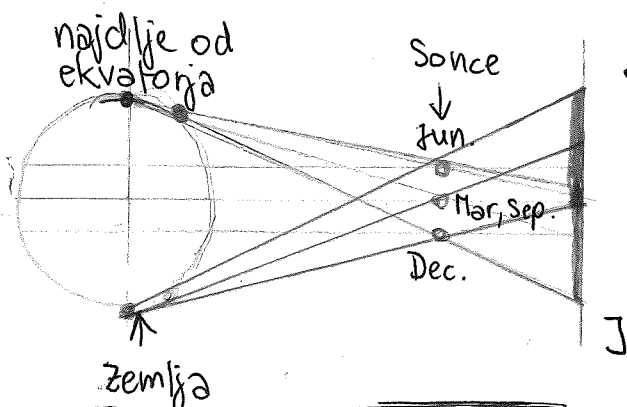 najdlje od
ekvatorja
Sonce
Jun.
Mar, Sep.
Dec.
J
Zemlja